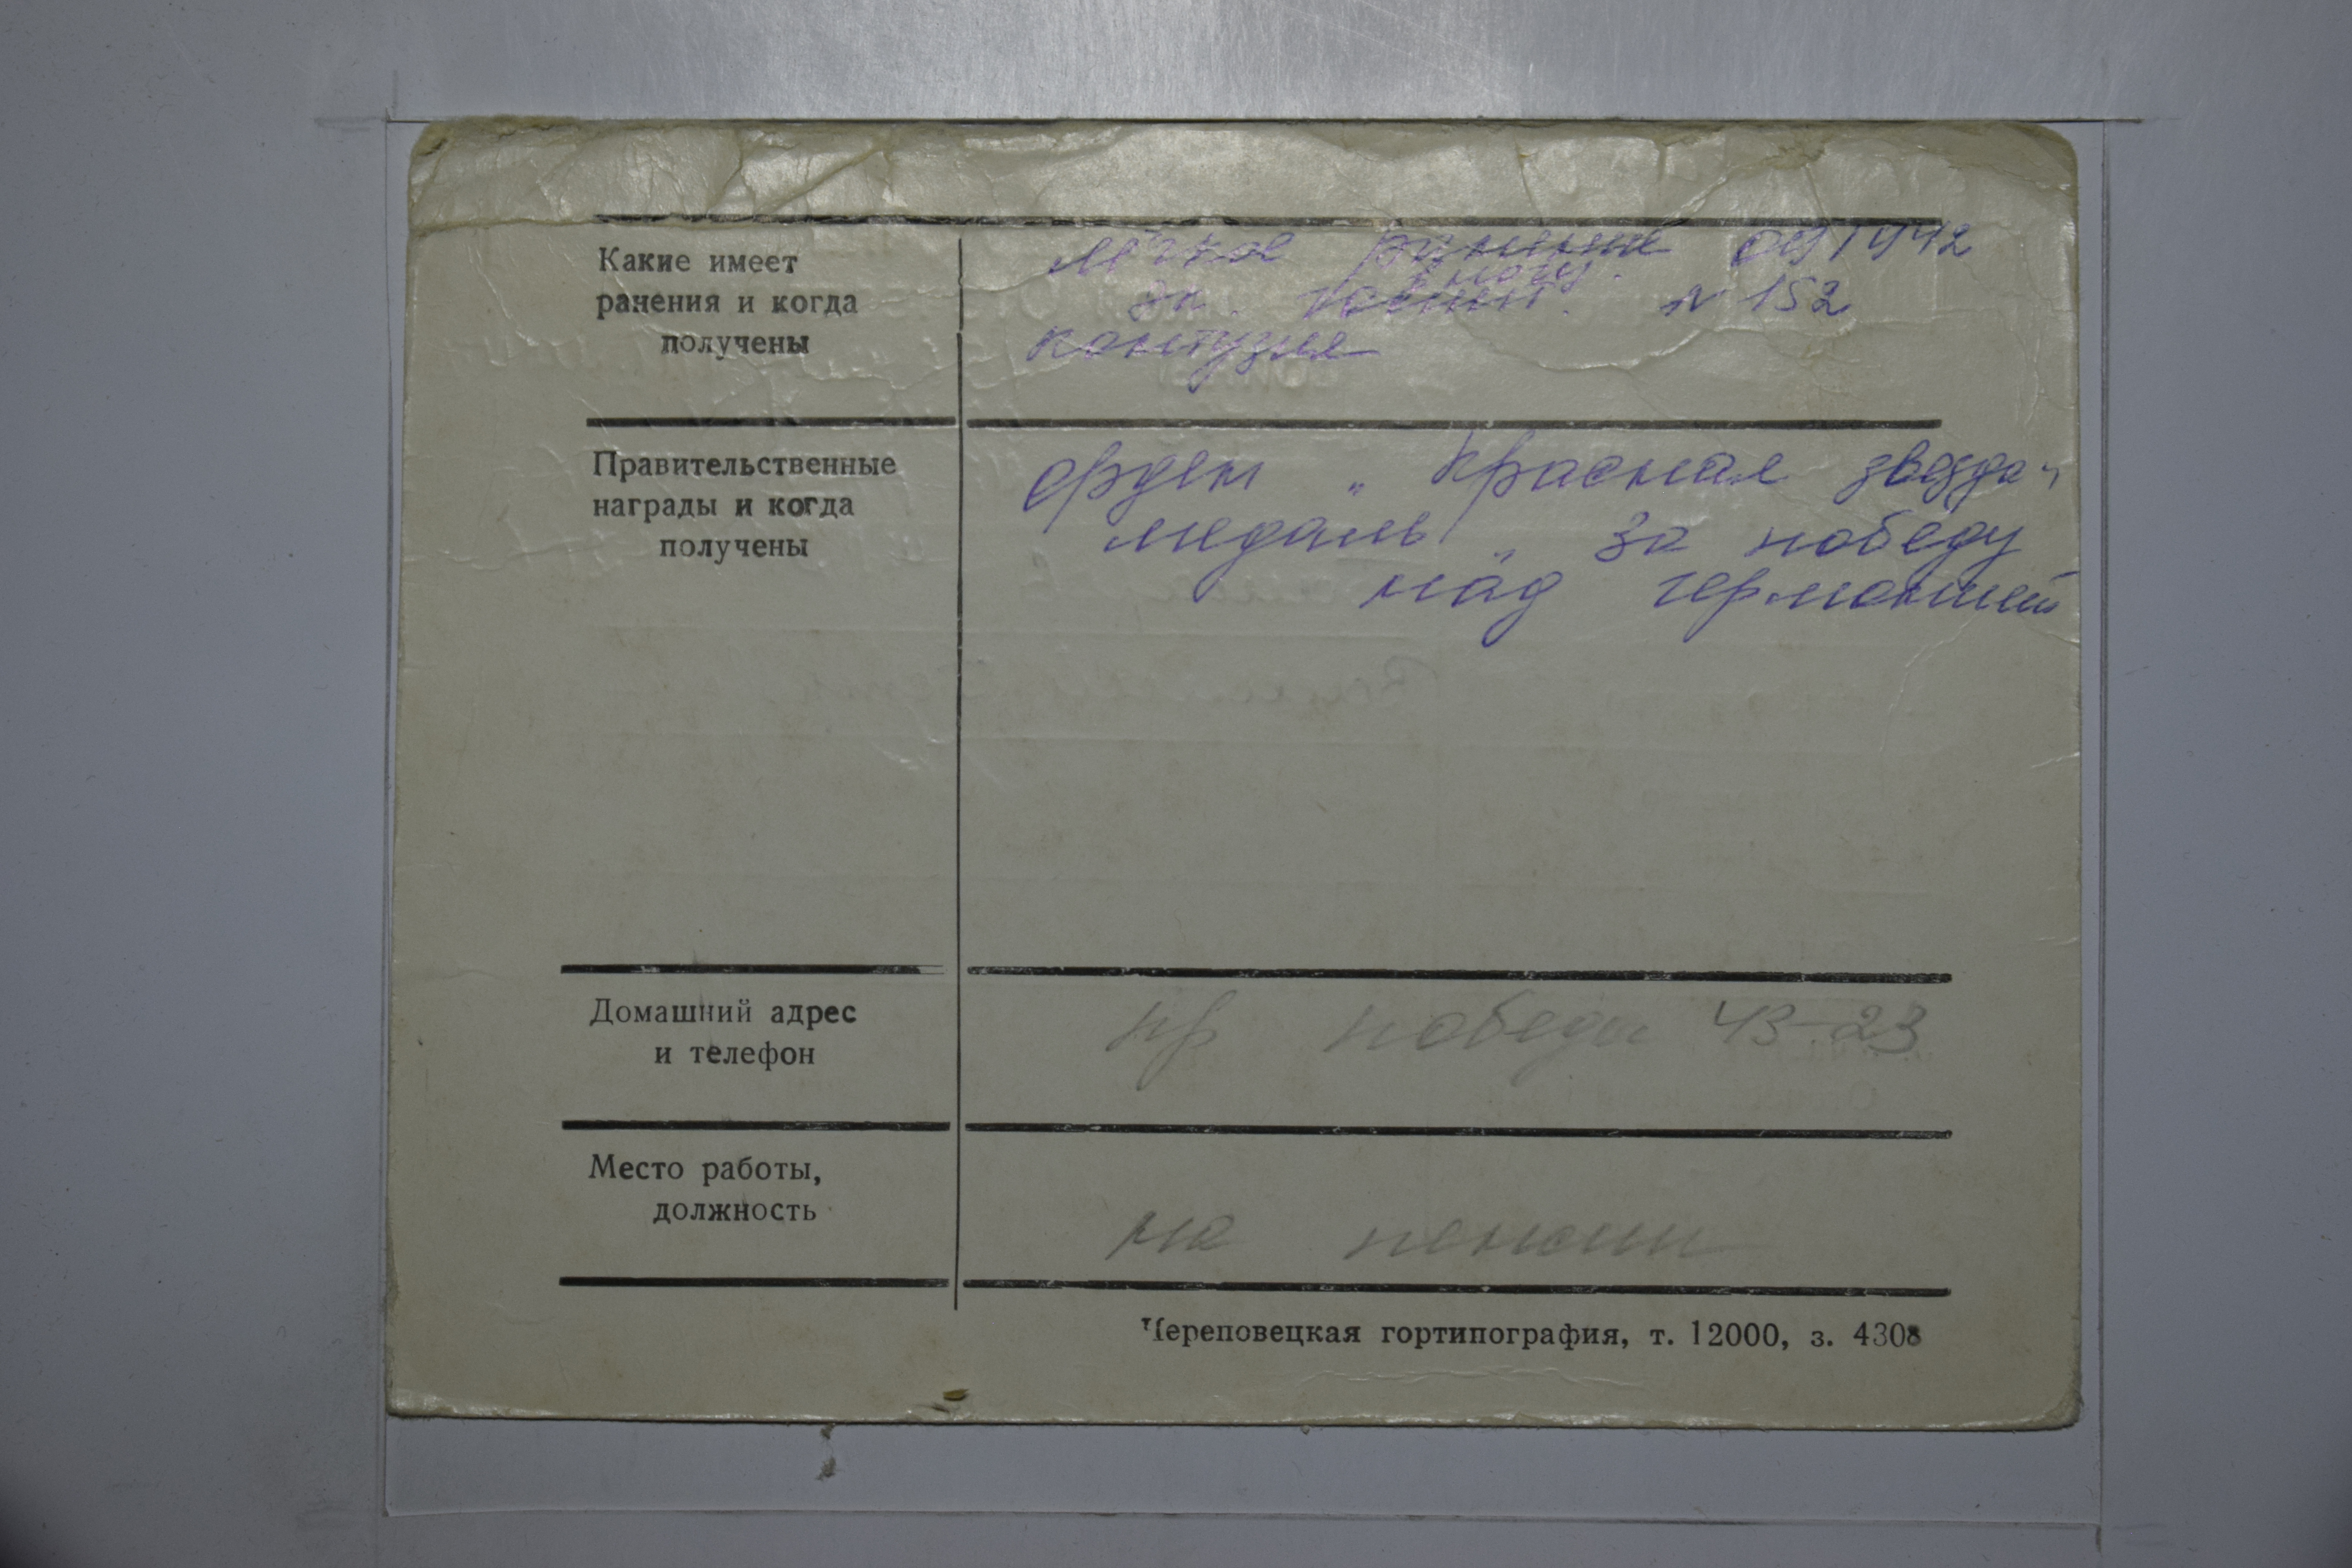 Какие имеет
ранения и когда
получены
лёгкое ранение 09 1942
в ногу.
эв. госпит. N 152
контузия
Правительственные
награды и когда
получены
орден „ Красная звезда"
медаль „ За победу
над германией
Домашний адрес
и телефон
пр победы 43-23
Место работы,
должность
на пенсии
Череповецкая гортипография, т. 12000, з. 4308